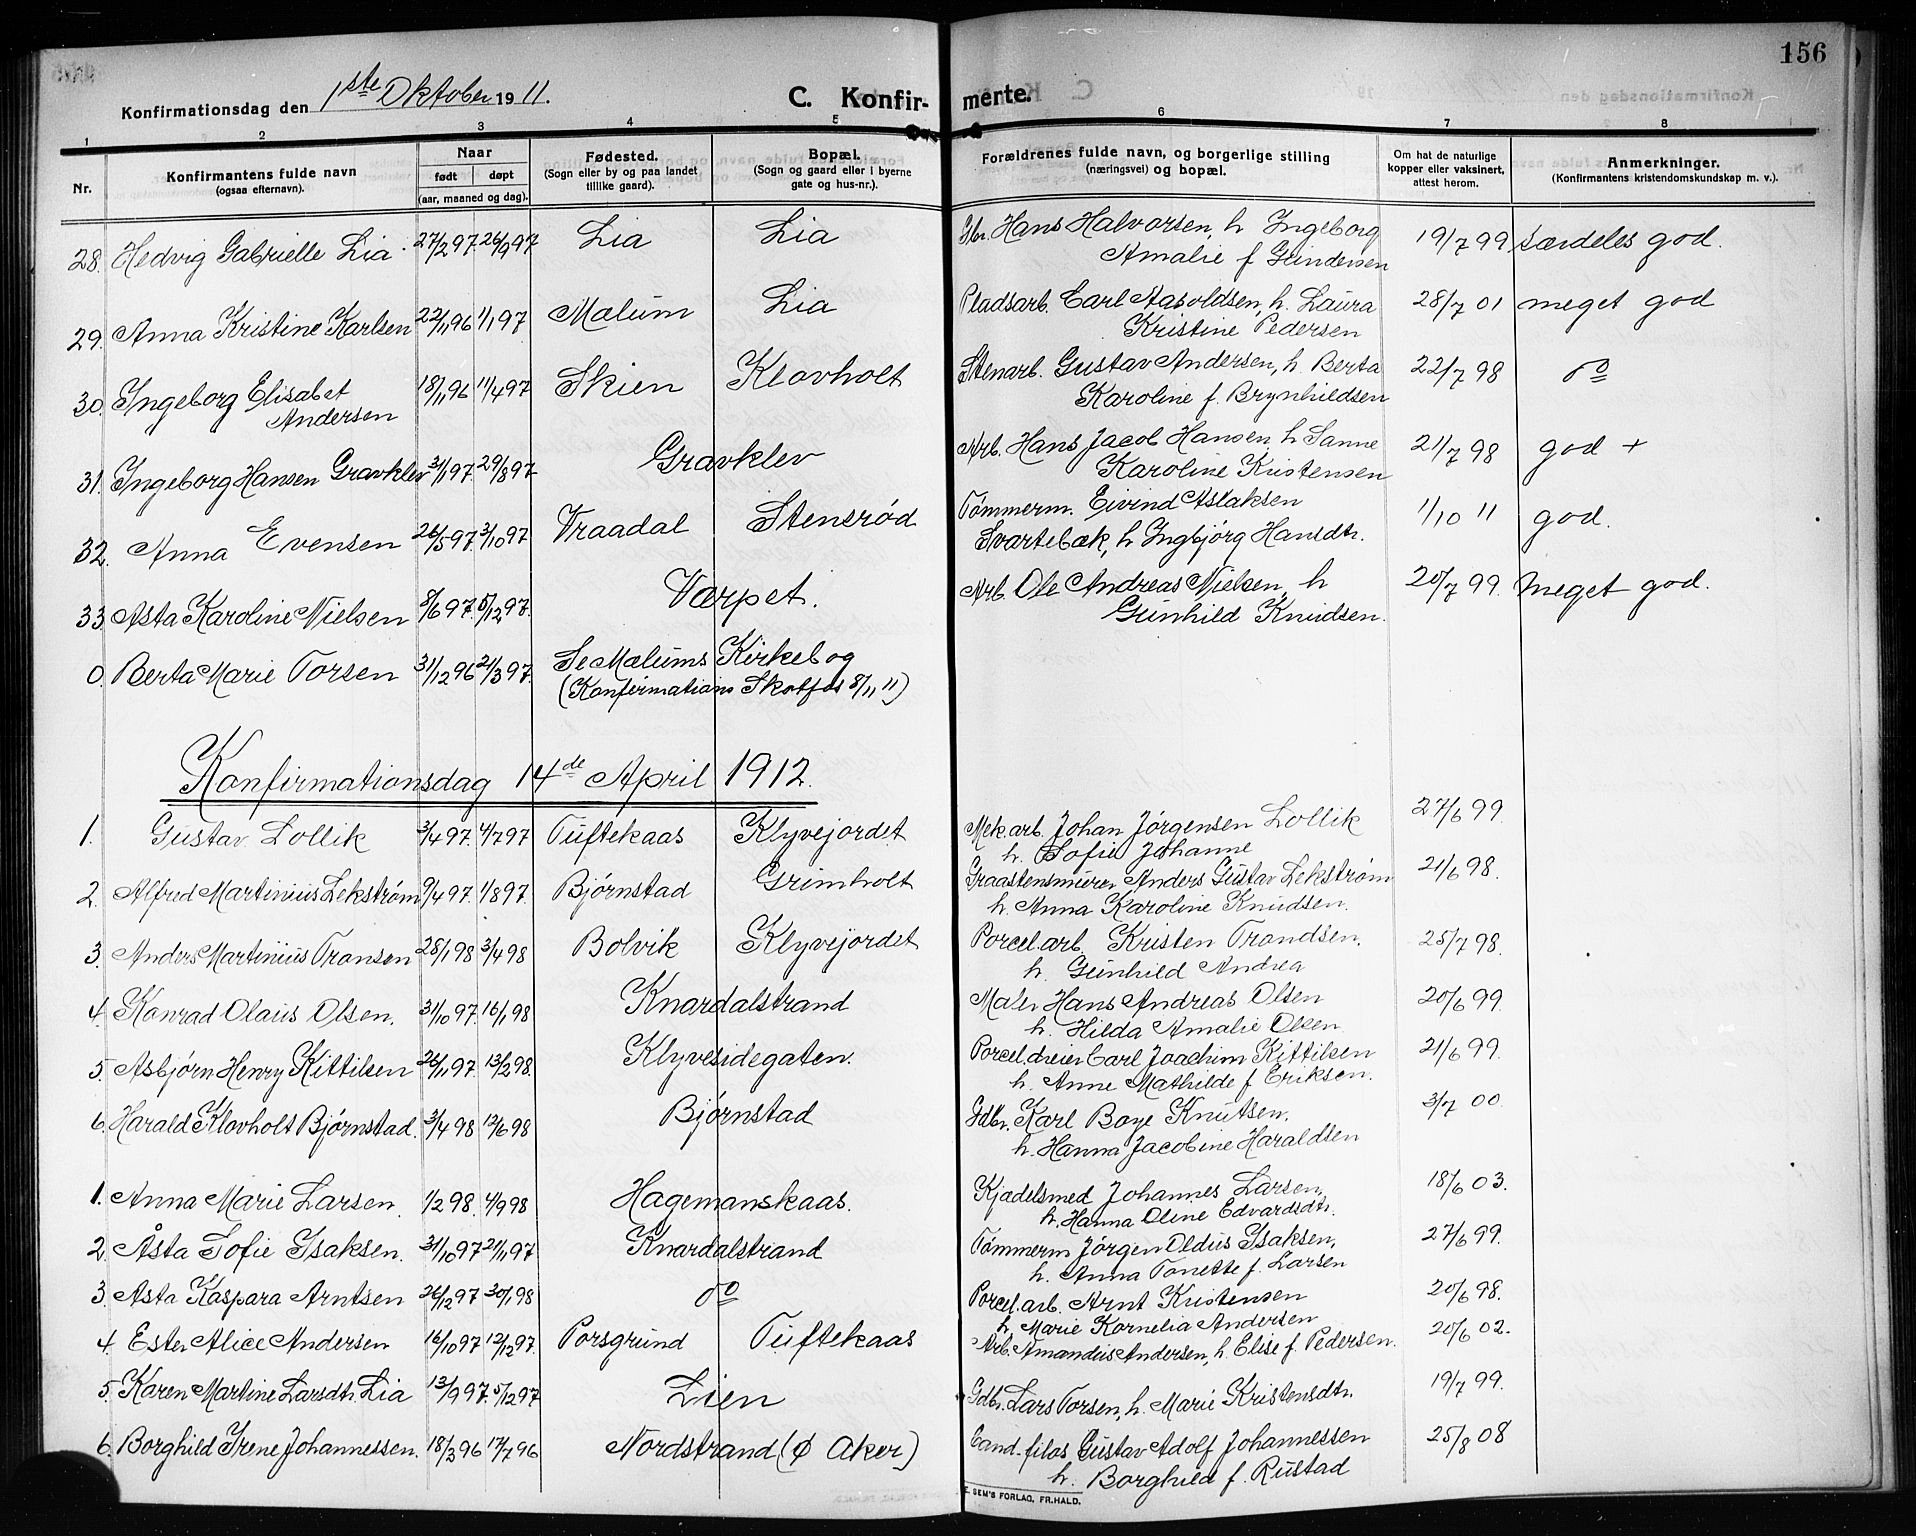 156
Konfirmationsdag den 1ste Oktober 1911.
C. Konfirmerte.
1 2 3 4 5 6 7 8
Nr.
Konfirmantens fulde navn (ogsaa efternavn).
Naar født døpt (aar, maaned og dag).
Fødested. (Sogn eller by og paa landet tillike gaard).
Bopæl. (Sogn og gaard eller i byerne gate og hus-nr.).
Forældrenes fulde navn, og borgerlige stilling (næringsvei) og bopæl.
Om hat de naturlige kopper eller vaksinert, attest herom.
Anmerkninger. (Konfirmantens kristendomskundskap m. v.).
28. Hedvig Gabrielle Lia 27/2 97. 26/9 97 Lia Lia Gbr. Hans Halvorsen, h Ingeborg 19/7 99. særdeles god.
Amalie f Gundersen
29. Anna Kristine Karlsen 22/11 96 1/1 97 Mælum Lia Pladsarb. Carl Aasoldsen, h. Laura 28/7 01 meget god
Kristine Pedersen
30. Ingeborg Elisabet 18/11 96 11/4 97 Skien Klovholt Stenarb. Gustav Andersen, h Berta 22/7 98 do
Andersen Karoline f. Brynhildsen
31. Ingeborg Hansen Gravklev 31/1 97 29/8 97 Gravklev Arb. Hans Jacob Hansen h Sanne 21/7 98 god +
Karoline Kristensen
32. Anna Evensen 26/5 97. 3/10 97 Vraadal Stensrød Tømmerm. Eivind Aslaksen 1/10 11 god.
Svartebæk, h Ingbjørg Hansdtr.
33 Asta Karoline Nielsen 8/6 97. 5/12 97. Værpet. Arb. Ole Andreas Nielsen, h 20/7 99. Meget god.
Gunhild Knudsen.
0. Berta Marie Torsen 31/12 96 21/3 97. Se Mælums Kirkebog
(Konfirmations Skotfos 8/11 11)
Konfirmationsdag 14de April 1912.
1. Gustav Lollik 3/4 97. 4/7 97 Tuftekaas Klyvejordet Mek.arb. Johan Jørgensen Lollik 27/6 99.
h. Sofie Johanne
2. Alfred Martinius Lekstrøm 9/4 97. 1/8 97. Bjørnstad Grimholt Graastensmurer Anders Gustav Lekstrøm 21/6 98.
h. Anna Karoline Knudsen.
3. Anders Martinius Transen 28/1 98 3/4 98 Bolvik Klyvejordet Porcel.arb. Kristen Trandsen. 25/7 98.
h. Gunhild Andrea
4. Konrad Olaus Olsen. 31/10 97. 16/1 98 Knardalstrand Maler Hans Andreas Olsen 20/6 99.
h. Hilda Amalie Olsen
5. Asbjørn Henry Kittilsen 26/11 97. 13/2 98. Klyvesidegaten. Porcel.dreier Carl Joachim Kittilsen 21/6 99.
h. Anne Mathilde f Eriksen.
6. Harald Klovholt Bjørnstad. 3/4 98 12/6 98 Bjørnstad Gdbr. Karl Boye Knutsen. 3/7 00.
h. Hanna Jacobine Haraldsen
1. Anna Marie Larsen. 1/2 98. 4/9 98 Hagemanskaas. Kjædelsmed Johannes Larsen, 18/6 03.
h. Hanna Oline Edvardsdtr.
2. Åsta Sofie Isaksen. 31/10 97 21/11 97 Knardalstrand Tømmerm Jørgen Oldus Isaksen, 27/6 99.
h. Anna Tonette f. Larsen
3. Asta Kaspara Arntsen 26/12 97 30/1 98 do Porcel.arb. Arnt Kristensen 20/6 98.
h. Marie Kornelia Andersen
4. Ester Alice Andersen 16/10 97 12/12 97. Porsgrund Tuftekaas Arb. Amandus Andersen, h. Elise f. Pedersen. 20/6 02.
5. Karen Martine Larsdtr. Lia 13/9 97. 5/12 97 Lien Gdbr. Lars Torsen, h. Marie Kristensdtr. 19/7 99.
6. Borghild Irene Johannessen. 18/3 96 17/7 96 Nordstrand (Ø Aker) Cand. filos Gustav Adolf Johannessen 25/8 08
h. Borghild f. Rustad
E. SEM'S FORLAG, FR.HALD.